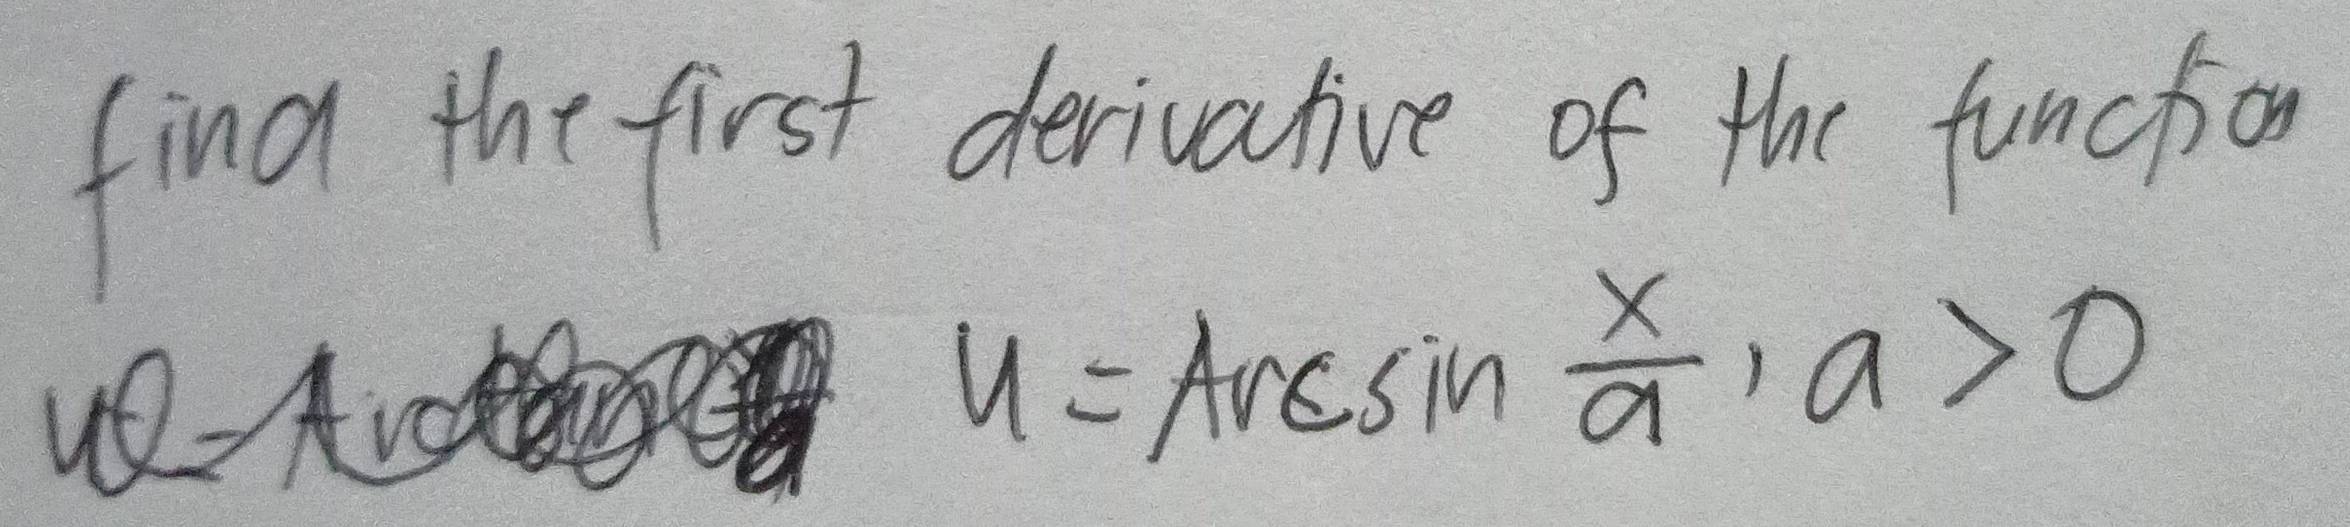 find the first derivative of the function
u = Arcsin x/a, a > 0